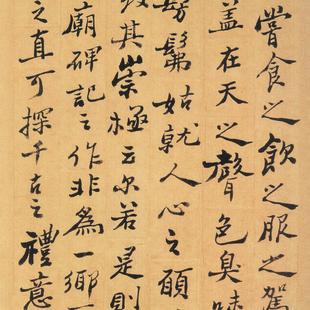 嘗食之飲之服之駕
盖在天之聲色臭味
髣髴姑就人心之願
其崇極云尔若是則
廟碑記之作非為一鄉
之真可探千古之禮意